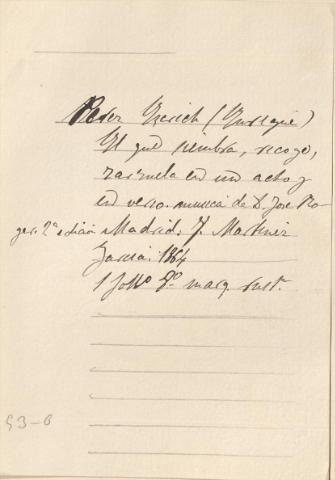 Perez Escrich (Enrique)
El que siembra, recoge,
zarzuela en un acto y
en verso. musica de D. Jose Ro-
gel. 2ª edición Madrid: J. Martinez
Garcia: 1864
1 foll.º 8º marq. rust.
53-6